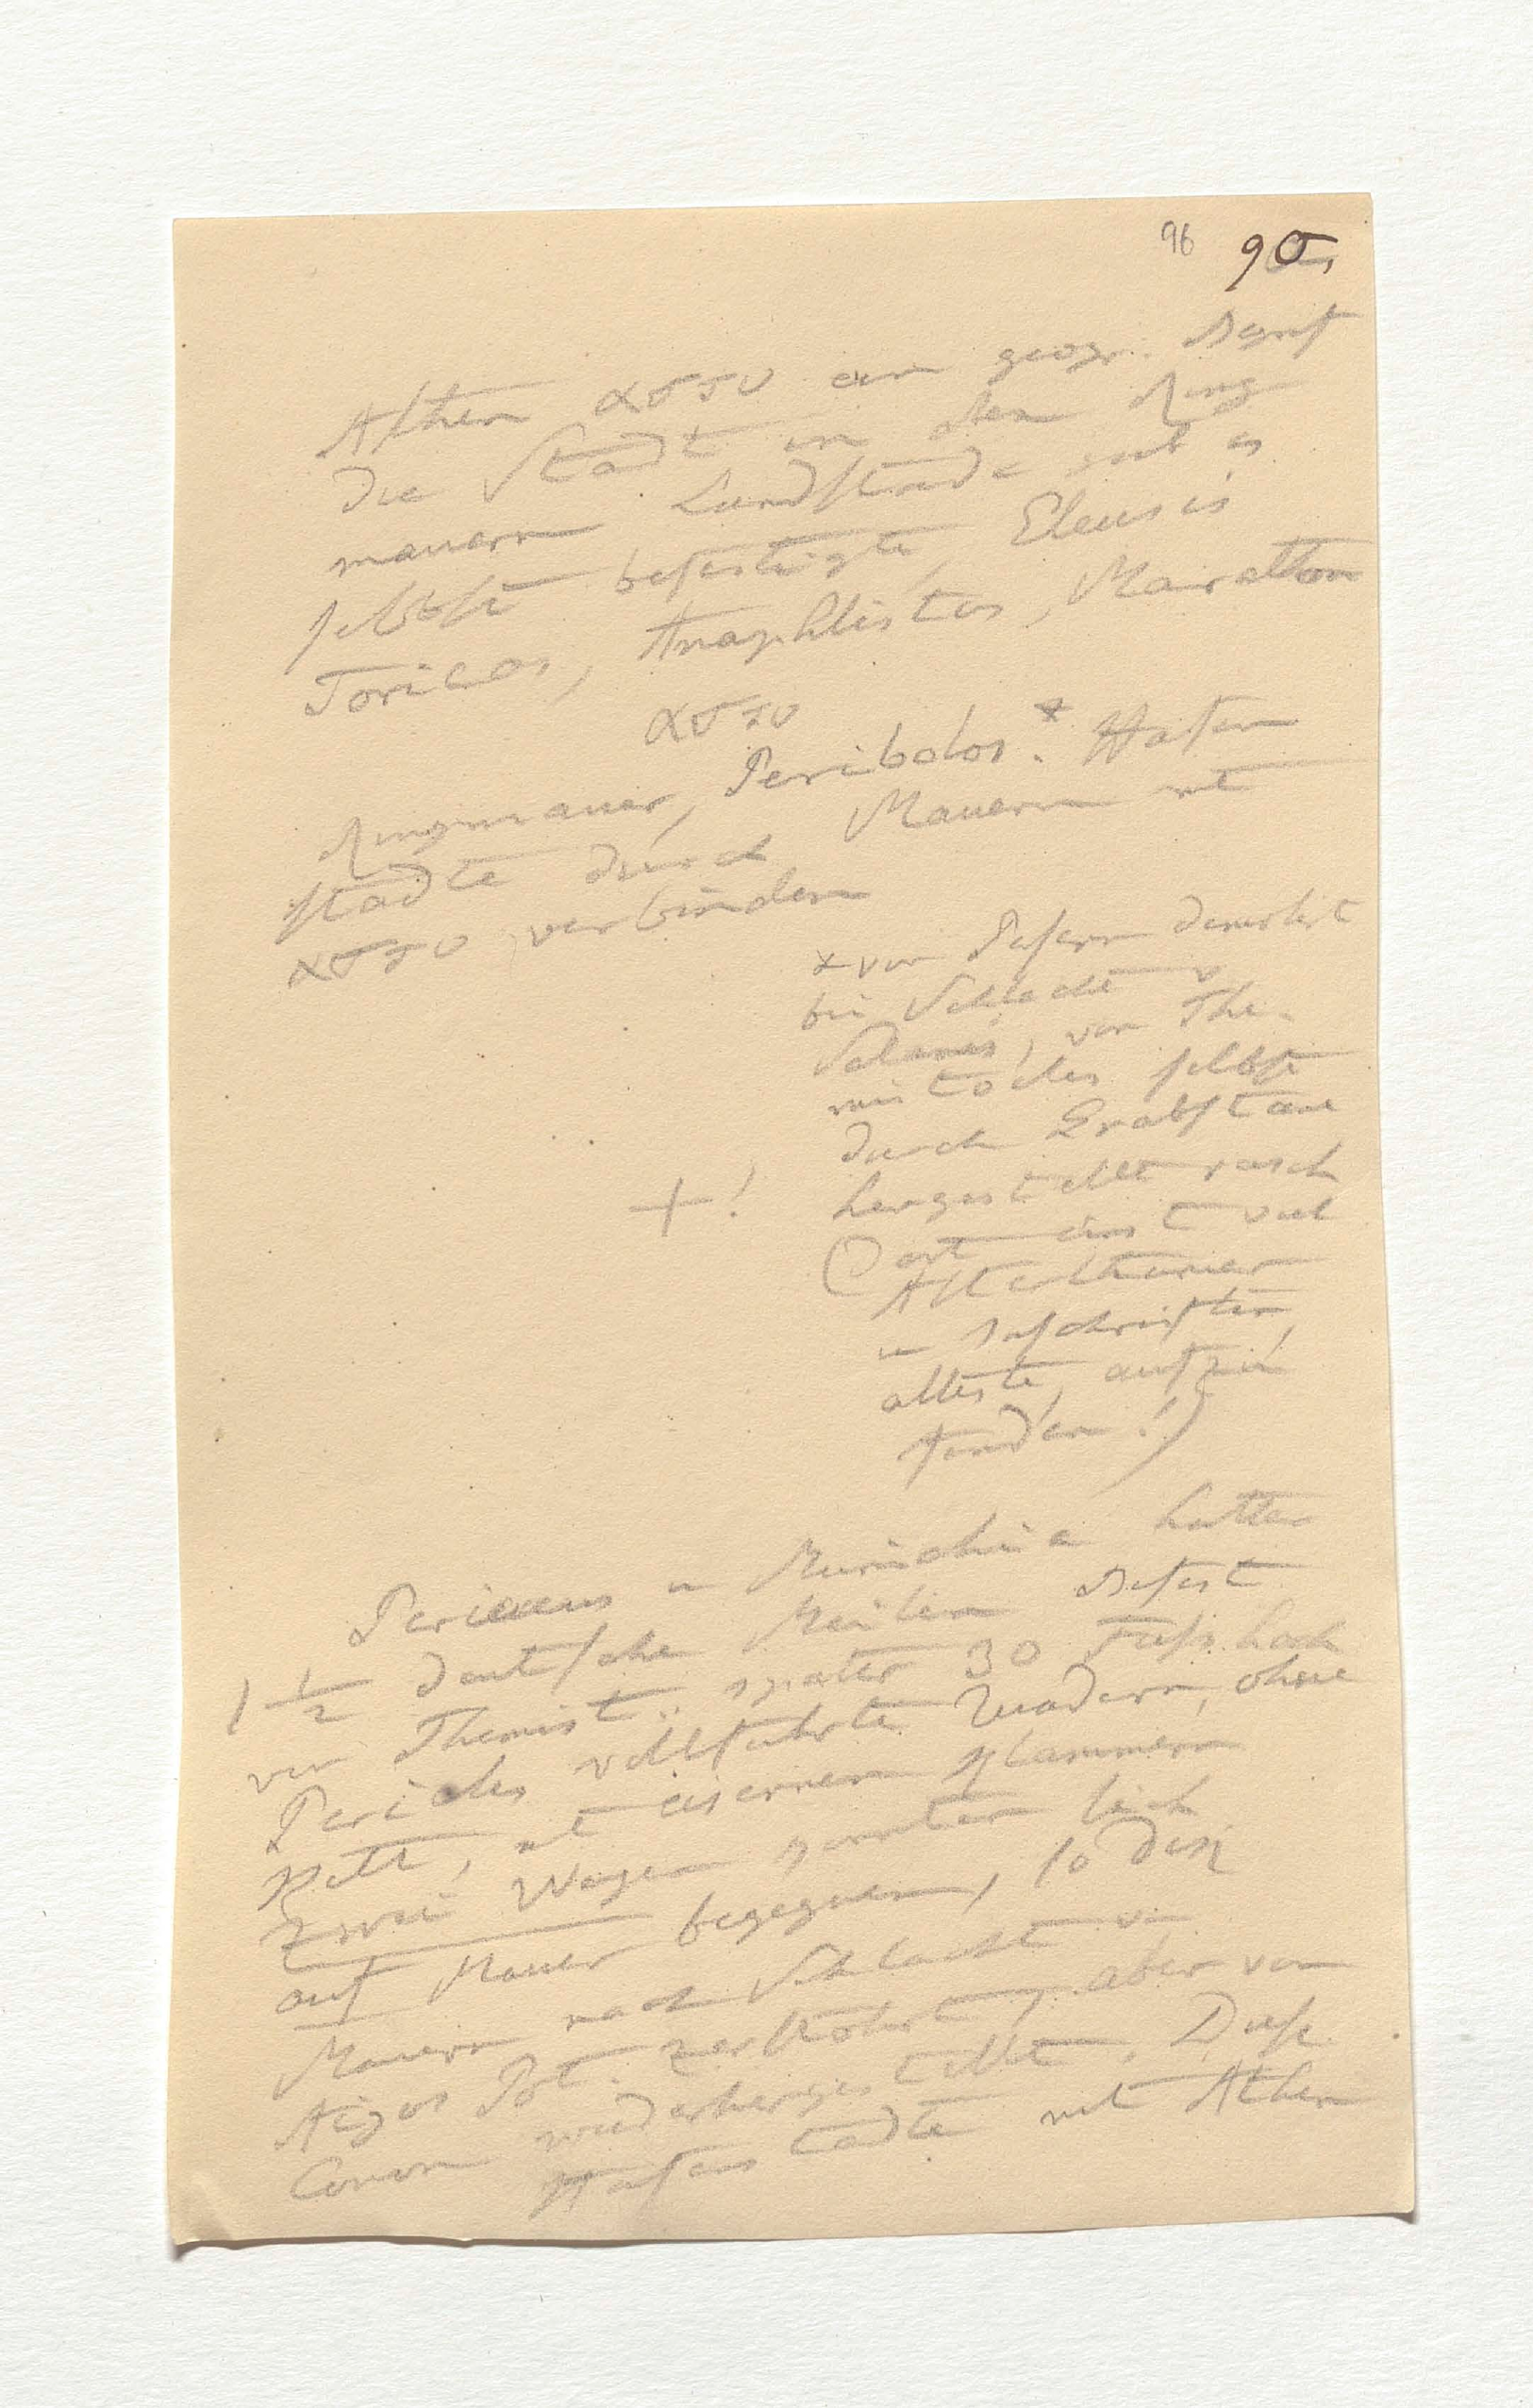 96 95,
Athen αστυ ein geogr. Begrif
die Stadt in den Ring
mauern Landstädte gab es
selbst befestigte, Eleusis
Toricos, Anaphlistos, Marathon
αστυ
Ringmauer, Peribolos.* Hafen
städte durch Mauern mit
αστυ verbinden
* von Persern demolirt
bei Schlacht v
Salamis, von The-
mistocles selbst
durch Grabsteine
hergestellt rasch
+! (Dort einst viel
Alterthümer
u Inschriften,
älteste, aufzu
finden!)
Periaeeus u Munichia hatte
1 1/2 deutsche Meilen Befest
von Themist.. später 30 Fuss hoch
Pericles vollführte Quadern, ohne
Kitt, mit eisernen Klammern
zwei Wagen konnten sich
auf Mauer begegnen, 10 dick
Mauern nach Schlacht v
Aigos Pot. zerstöhrt, aber von
Conon wiederhergestellt. Diese
Hafenstädte mit Athen